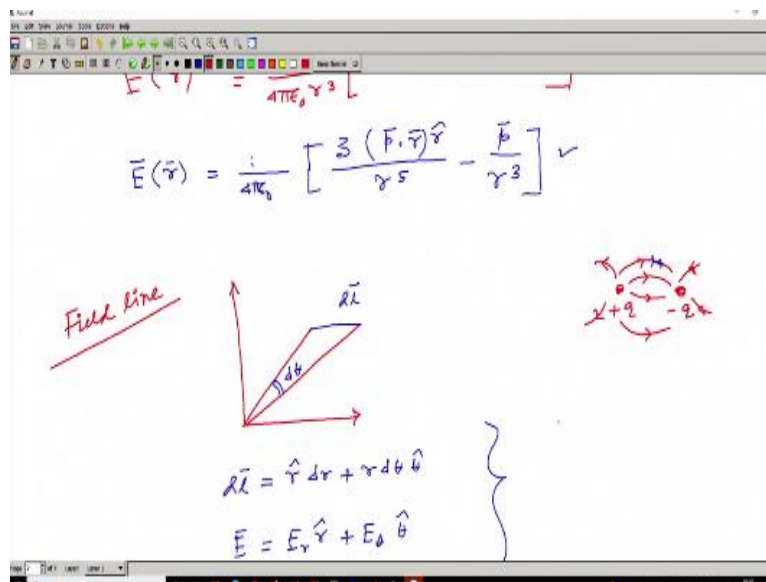 E(r) = 1/4πϵ₀ r³ [ ]
Ē(r̄) = 1/4πϵ₀ [ 3(p̄·r̄)r̂/r⁵ − p̄/r³ ] ✓
Field line
dl̄
dθ
+q −q
dl̄ = r̂ dr + r dθ θ̂
Ē = Eᵣ r̂ + E_θ θ̂